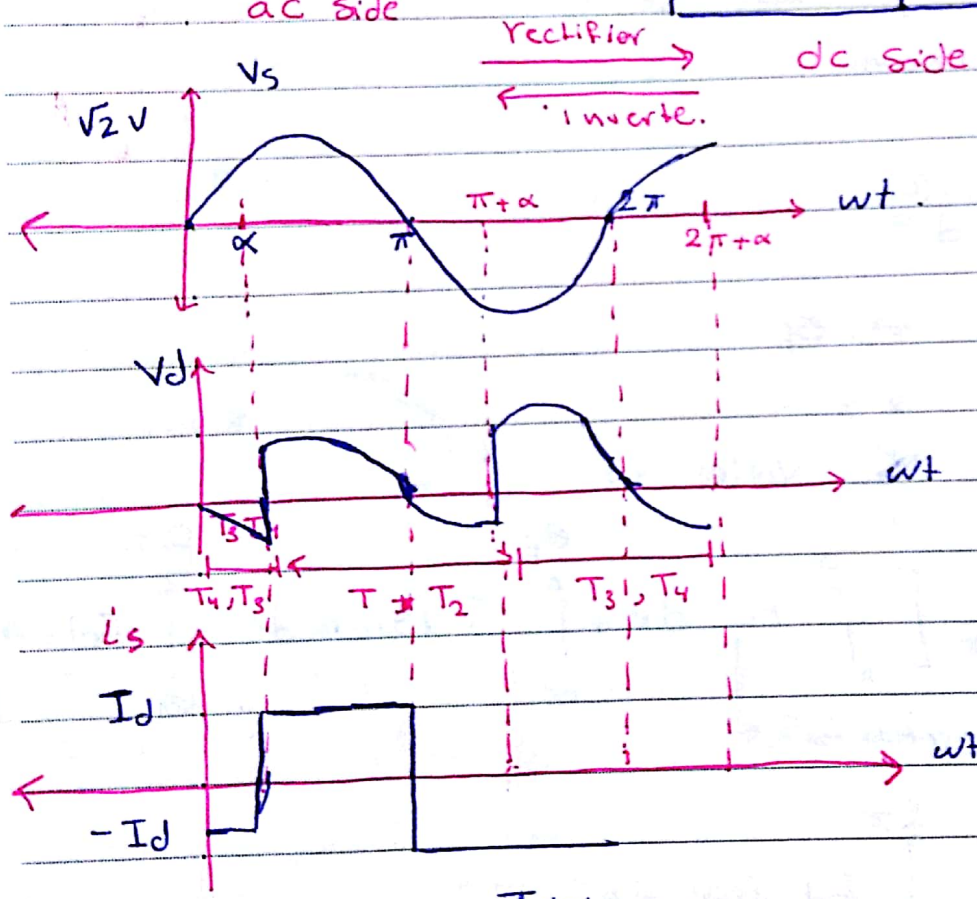 ac side
rectifier
dc side
inverte.
Vs
√2 V
π+α
2π
wt.
α
π
2π+α
Vd
wt
T3 T4
T4,T3
T
T2
T3, T4
is
Id
wt
-Id